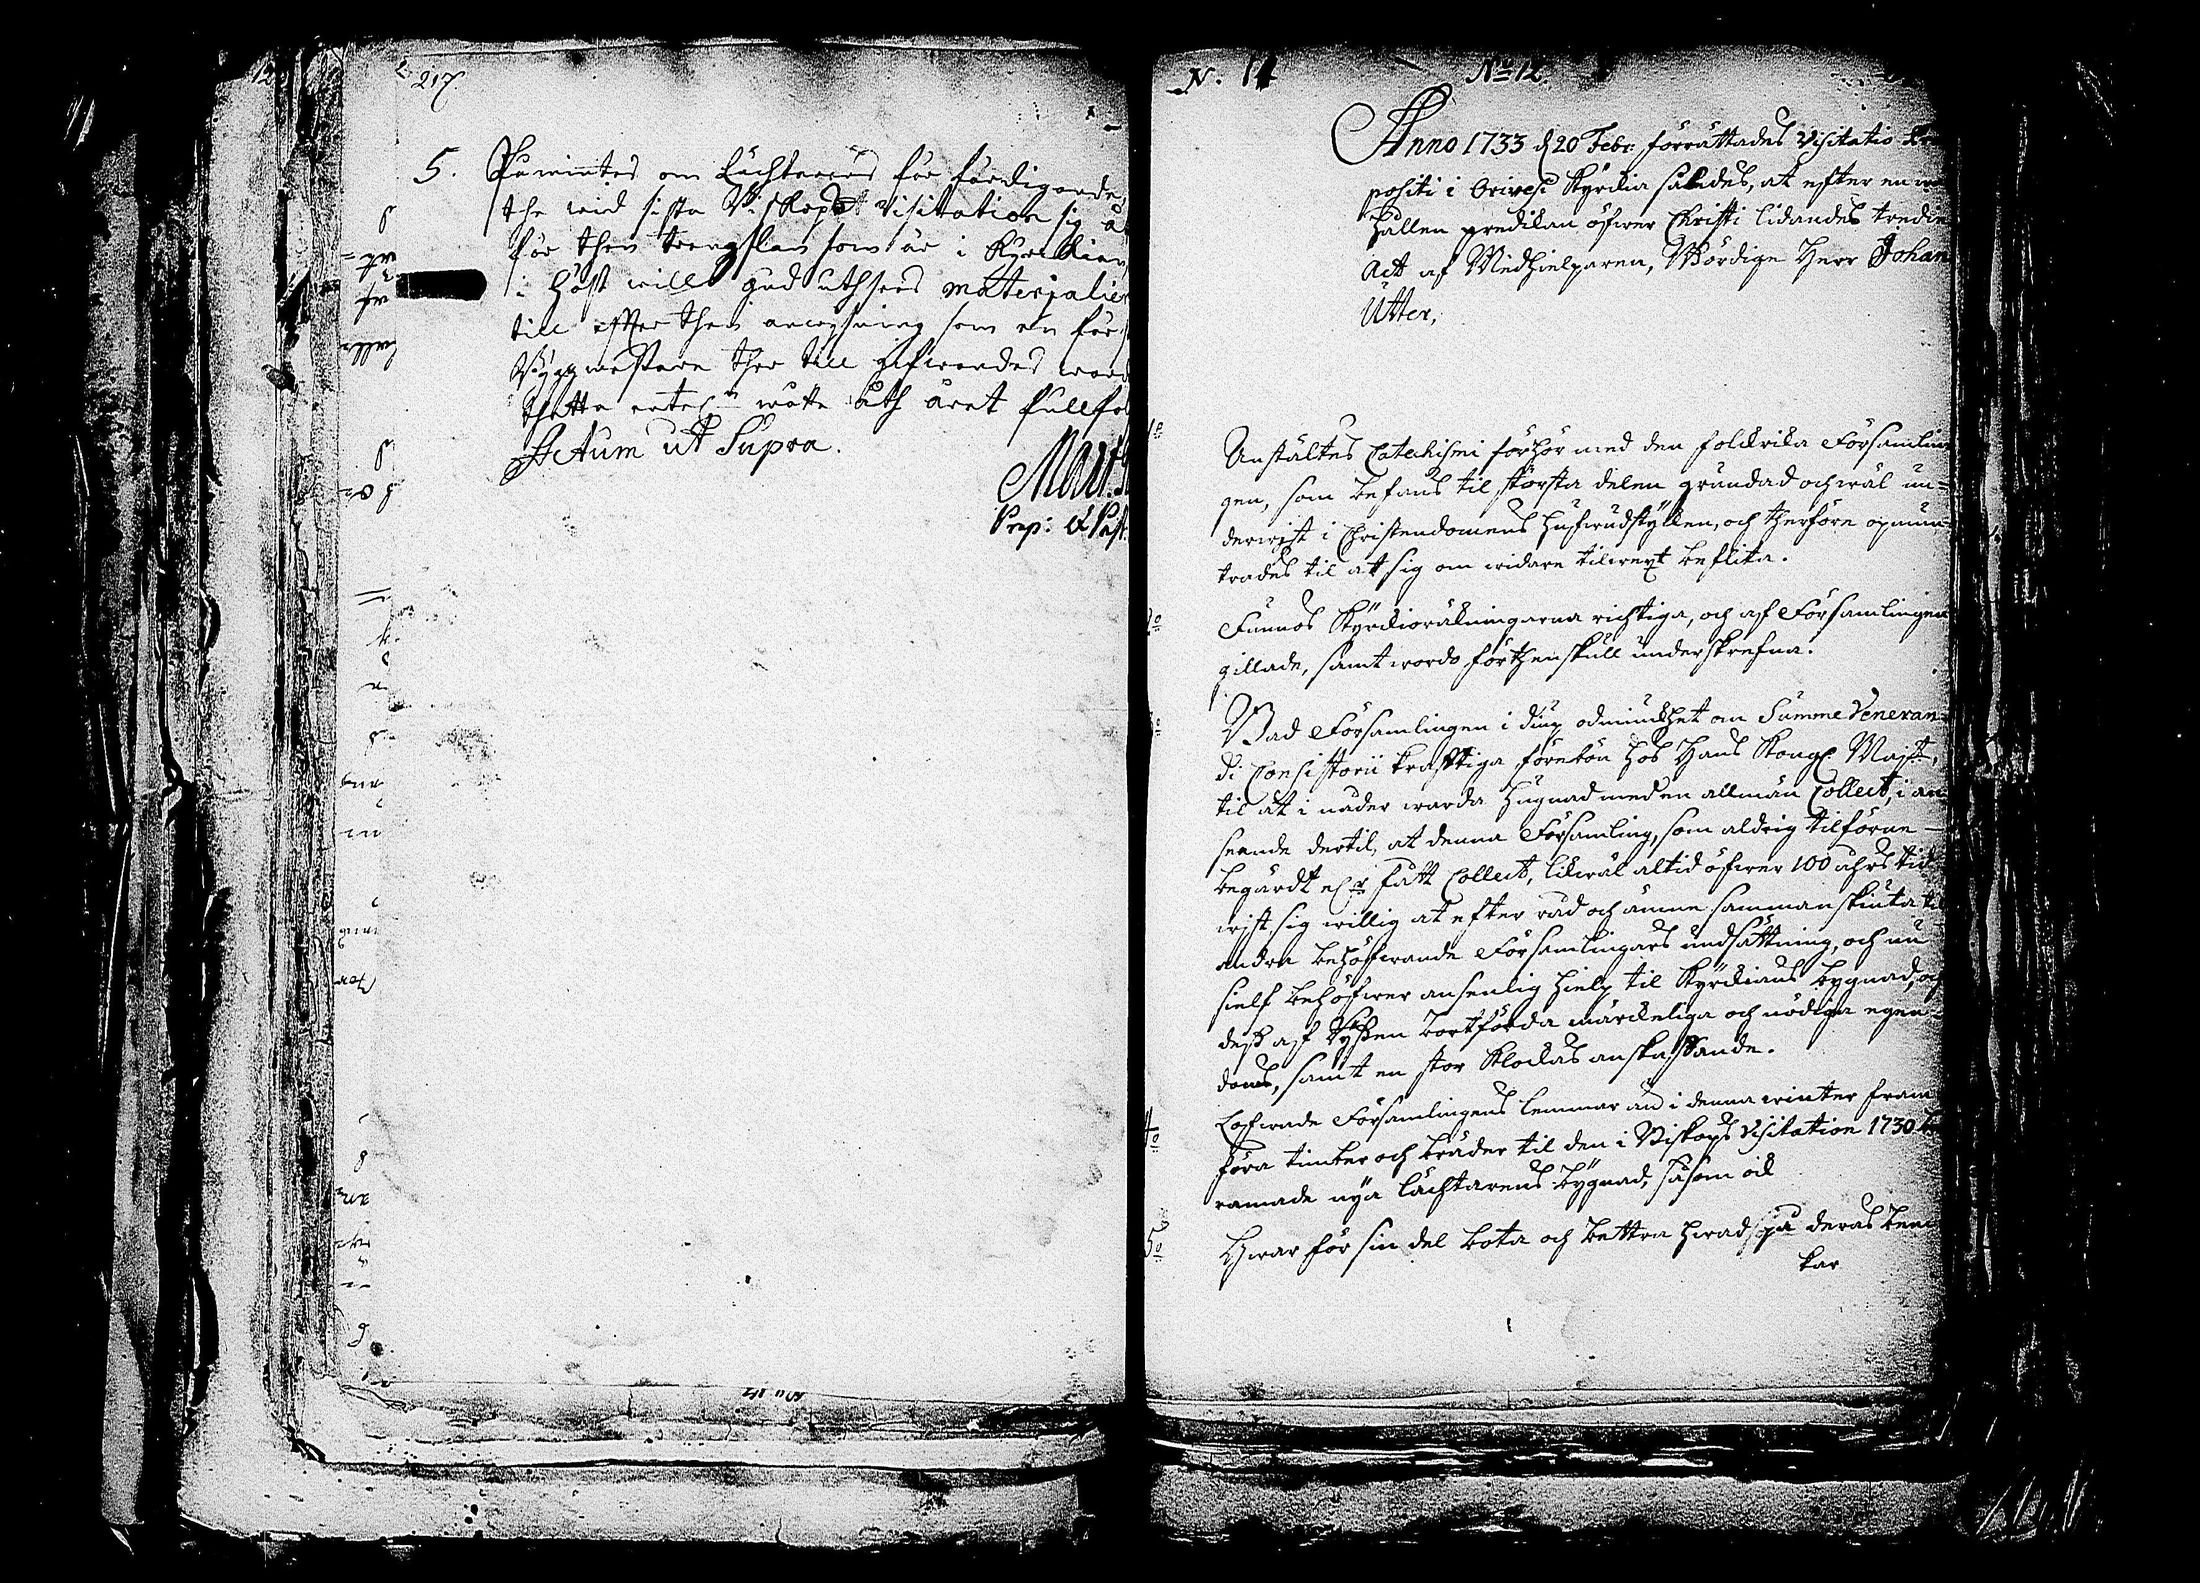 217.
5. Påmintes om Lächterens för färdigande,
the wid sista Biskops visitation sig å
för then trengslan som är i Kyrckian
i höst will Gud uthsees materialier
till effter then anwysning som en för
Byggmestare ther till gifwandes ward
thetta wette åth året fullfö
Actum ut Supra.
Mart.
Præp: & Past.
N. 14 No 12
Anno 1733 d 20 Febr: förrättades Visitatio
positi i Orivesi Kyrckia således, at efter en
hållen predikan öfwer Christi lidandes tredie
Act af Medhielparen, Wördige Herr Johan
Utter,
1o
Anstältes Catechismi förhör med den folckrika Församlin
gen, som befans til största delen grundad och wäl un-
derwist i Christendomens hufwudstycken, och therföre opmun
trades til at sig om widare tilwext beflita.
2o
Funnos Kyrckioräkningarna richtiga, och af Församlingen
gillade, samt wordo förthenskull underskrefna.
Bad Församlingen i diup ödmiukhet om Summe Veneran-
di Consistorii krafftiga förebön hos Hans Kongl. Majt,
til at i nåder warda hugnad med en allmän Collect, i an-
seende dertil, at denna Församling, som aldrig tilförne
begärdt el:r fått Collect, likwäl altid öfwer 100 åhrs tid
wist sig willig at efter råd och ämne sammanskiuta til
andra behöfwande Församlingars undsättning, och nu
sielf behöfwer ansenlig hielp til Kyrckians bygnad, och
dess af Ryssen bortförda märckeliga och nödiga egen-
doms, samt en stor Klockas anskaffande.
4o
Lofwade Församlingens lemmar än i denna winter fram
föra timber och bräder til den i Biskops Visitation 1730 be
ramade nya lächtarens bygnad, såsom ock
5o
Hwar för sin del bota och bettra hwad på deras ben
kar